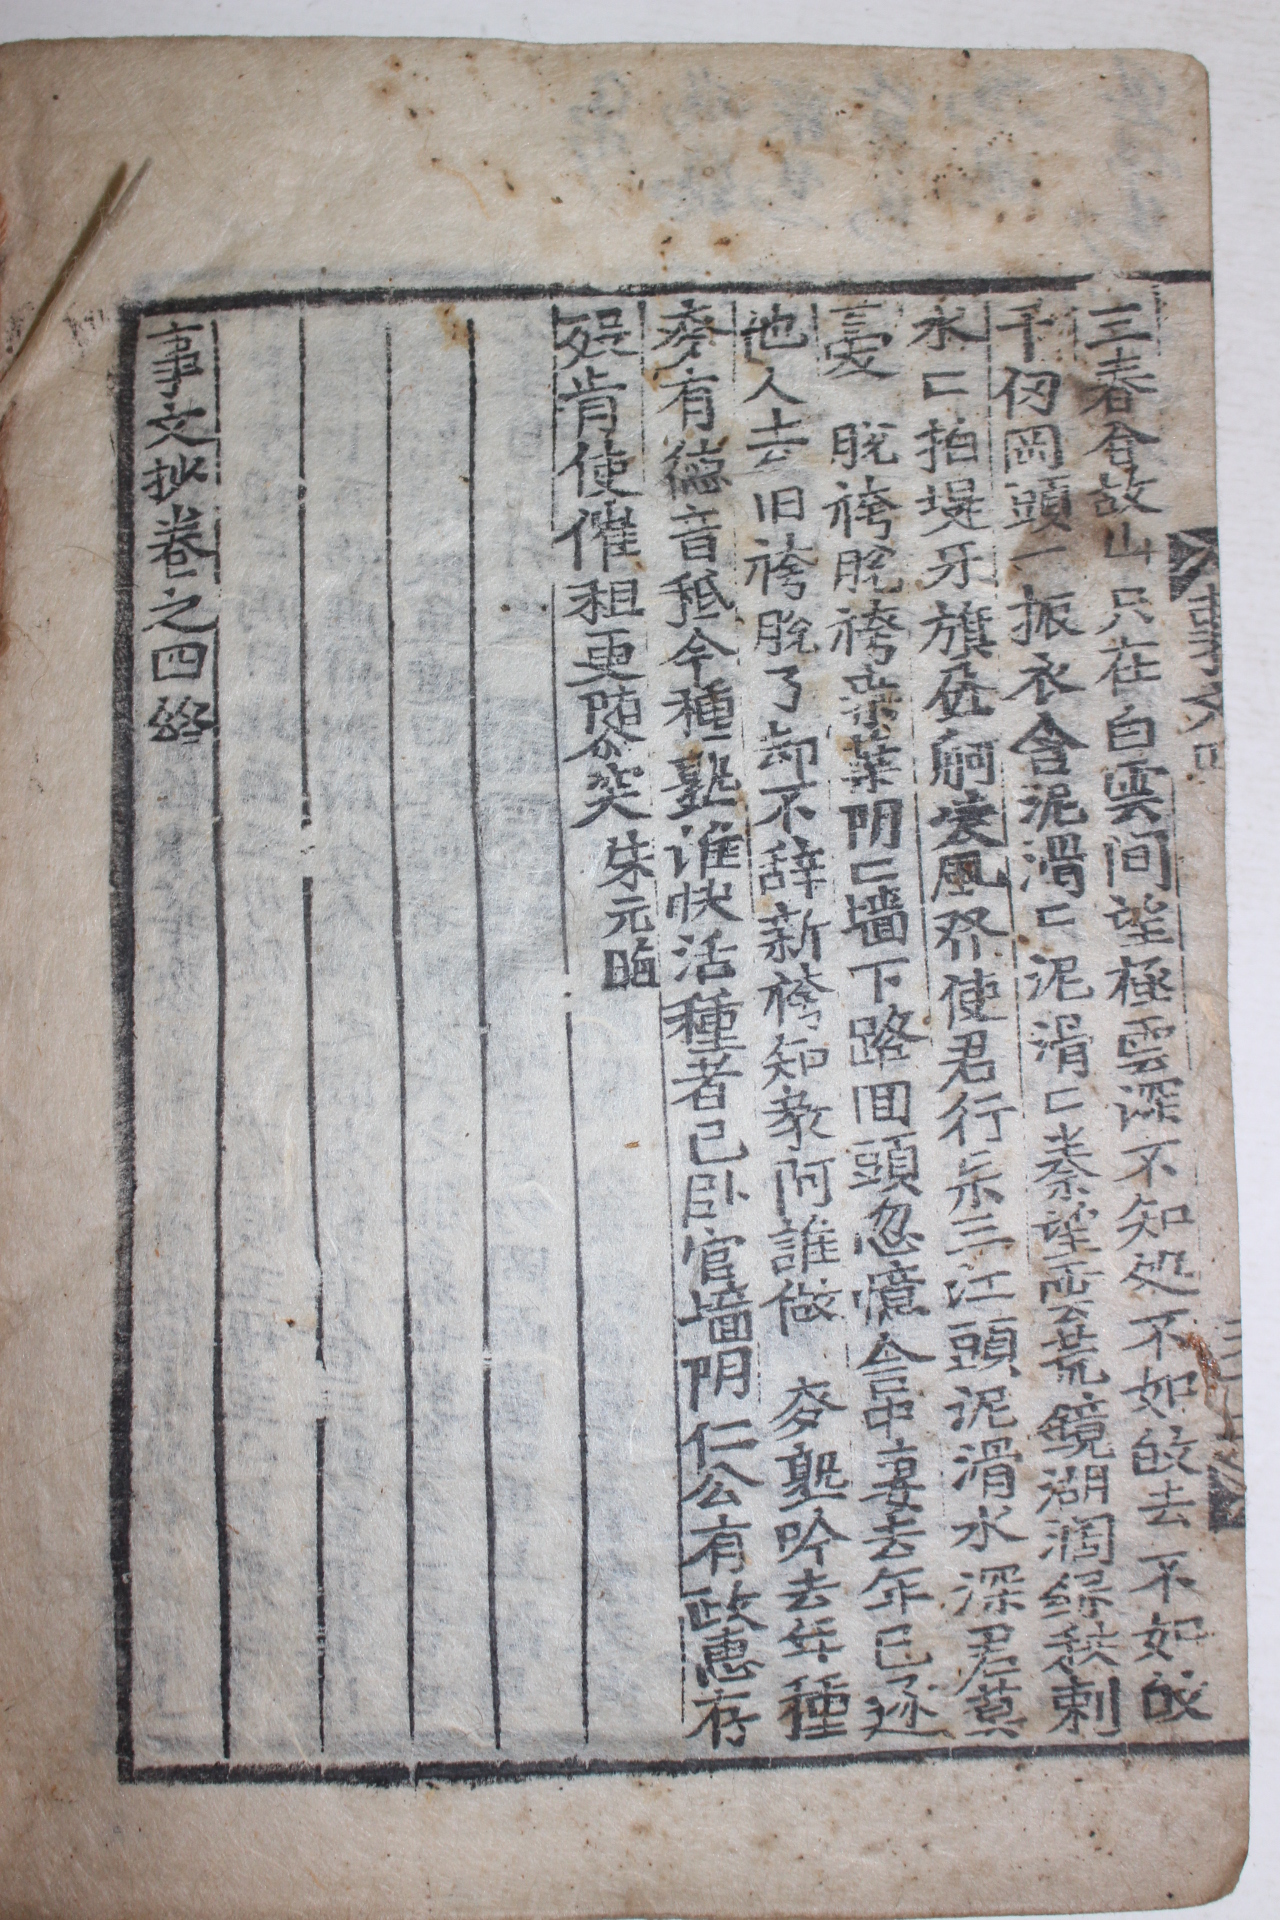 三春舍故山只在白雲间望極雲深不知処不如啟去不如啟
千仞岡頭一振衣 含泥滑匚泥滑匚秦望雨荒鏡湖润绿秧剌
水匚拍堤牙旗畫舸凌風发使君行乐三江頭泥滑水深君莫
憂 脫袴脫袴桒葉阴匚墙下路回頭忽憶舍中妻去年已逐
他人去旧袴脫了却不辞新袴知教阿誰做 麥塾吟去年種
麥有德音秪今種塾谁快活種者已卧官墙阴仁公有政惠存
殁肯使催租更随分哭 朱元晦
事文抄卷之四終
事文四